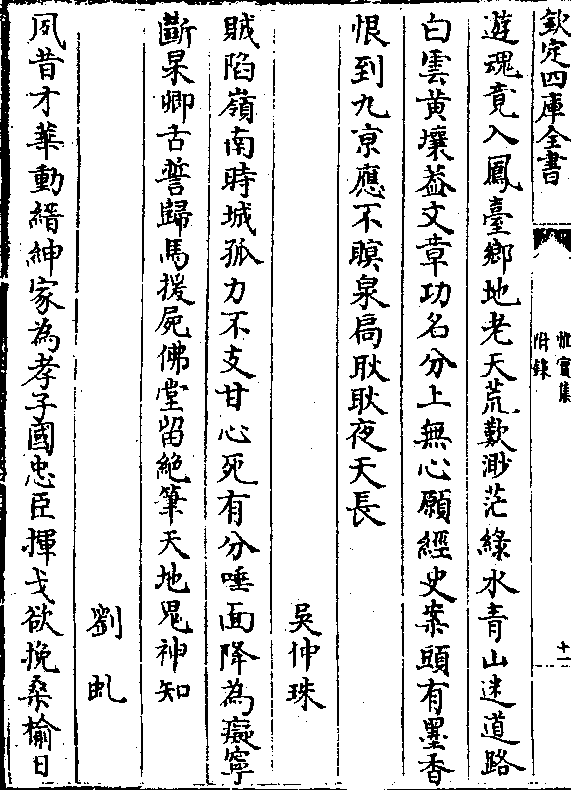 欽定四庫全書
惟實集
附錄
十一
遊魂竟入鳳臺鄉地老天荒歎渺茫綠水青山迷道路
白雲黄壤葢文章功名分上無心願經史案頭有墨香
恨到九京應不瞑泉扃耿耿夜天長
吳仲珠
賊陷嶺南時城孤力不支甘心死有分唾面降為癡寧
斷杲卿舌誓歸馬援屍佛堂留絶筆天地鬼神知
劉虬
夙昔才華動縉紳家為孝子國忠臣揮戈欲挽桑榆日